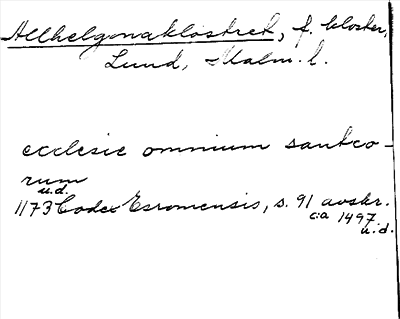 Allhelgonaklostret, f. kloster,
Lund, Malm. l.
ecclesie omnium santco-
rum
u.d.
1173 Codex Esromensis, s. 91 avskr.
ca 1497
u.d.